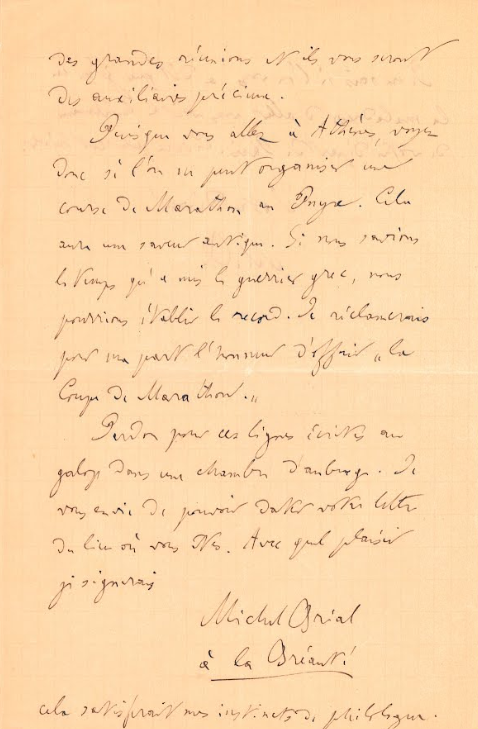 des grandes réunions et ils vous seront
des auxiliaires précieux.
Puisque vous allez à Athènes, voyez
donc si l'on ne peut organiser une
course de Marathon au Pnyx. Cela
aura une saveur antique. Si nous savions
le temps qu'a mis le guerrier grec, nous
pourrions établir le record. Je réclamerais
pour ma part l'honneur d'offrir „la
Coupe de Marathon.„
Pardon pour ces lignes écrites au
galop dans une chambre d'auberge. Je
vous envie de pouvoir dater votre lettre
du lieu où vous êtes. Avec quel plaisir
je signerais
Michel Bréal
à la
cela satisferait mes instincts de philologue.